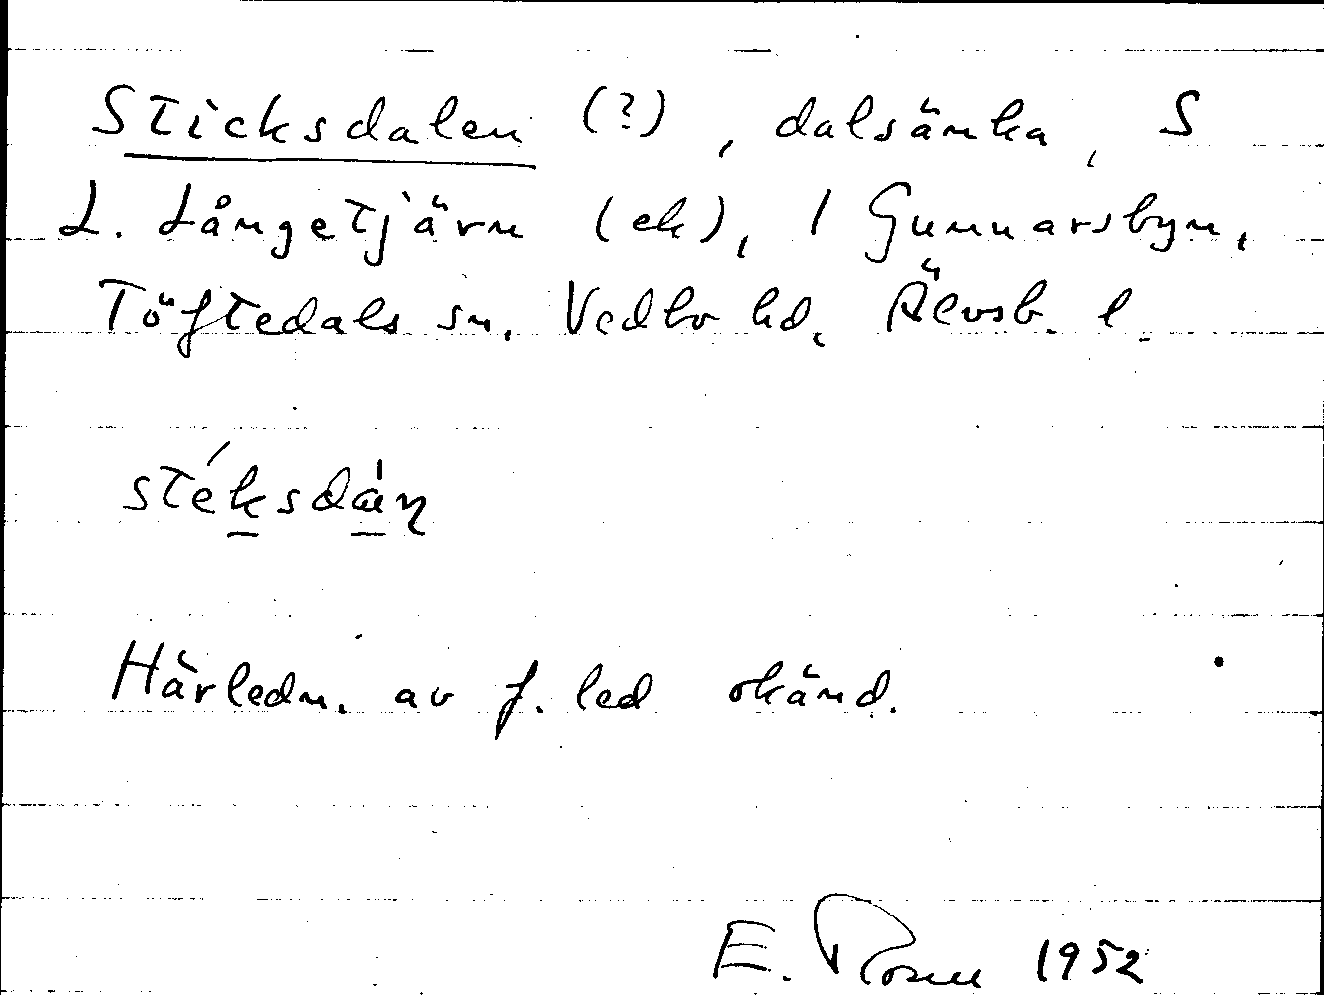 Sticksdalen (?), dalsänka, S
L. Långetjärn (ek), 1 Gunnarsbyn,
Töftedals sn. Vedbo hd. Älvsb. l.
stéksdán
Härledn. av f. led okänd.
E. Rosell 1952